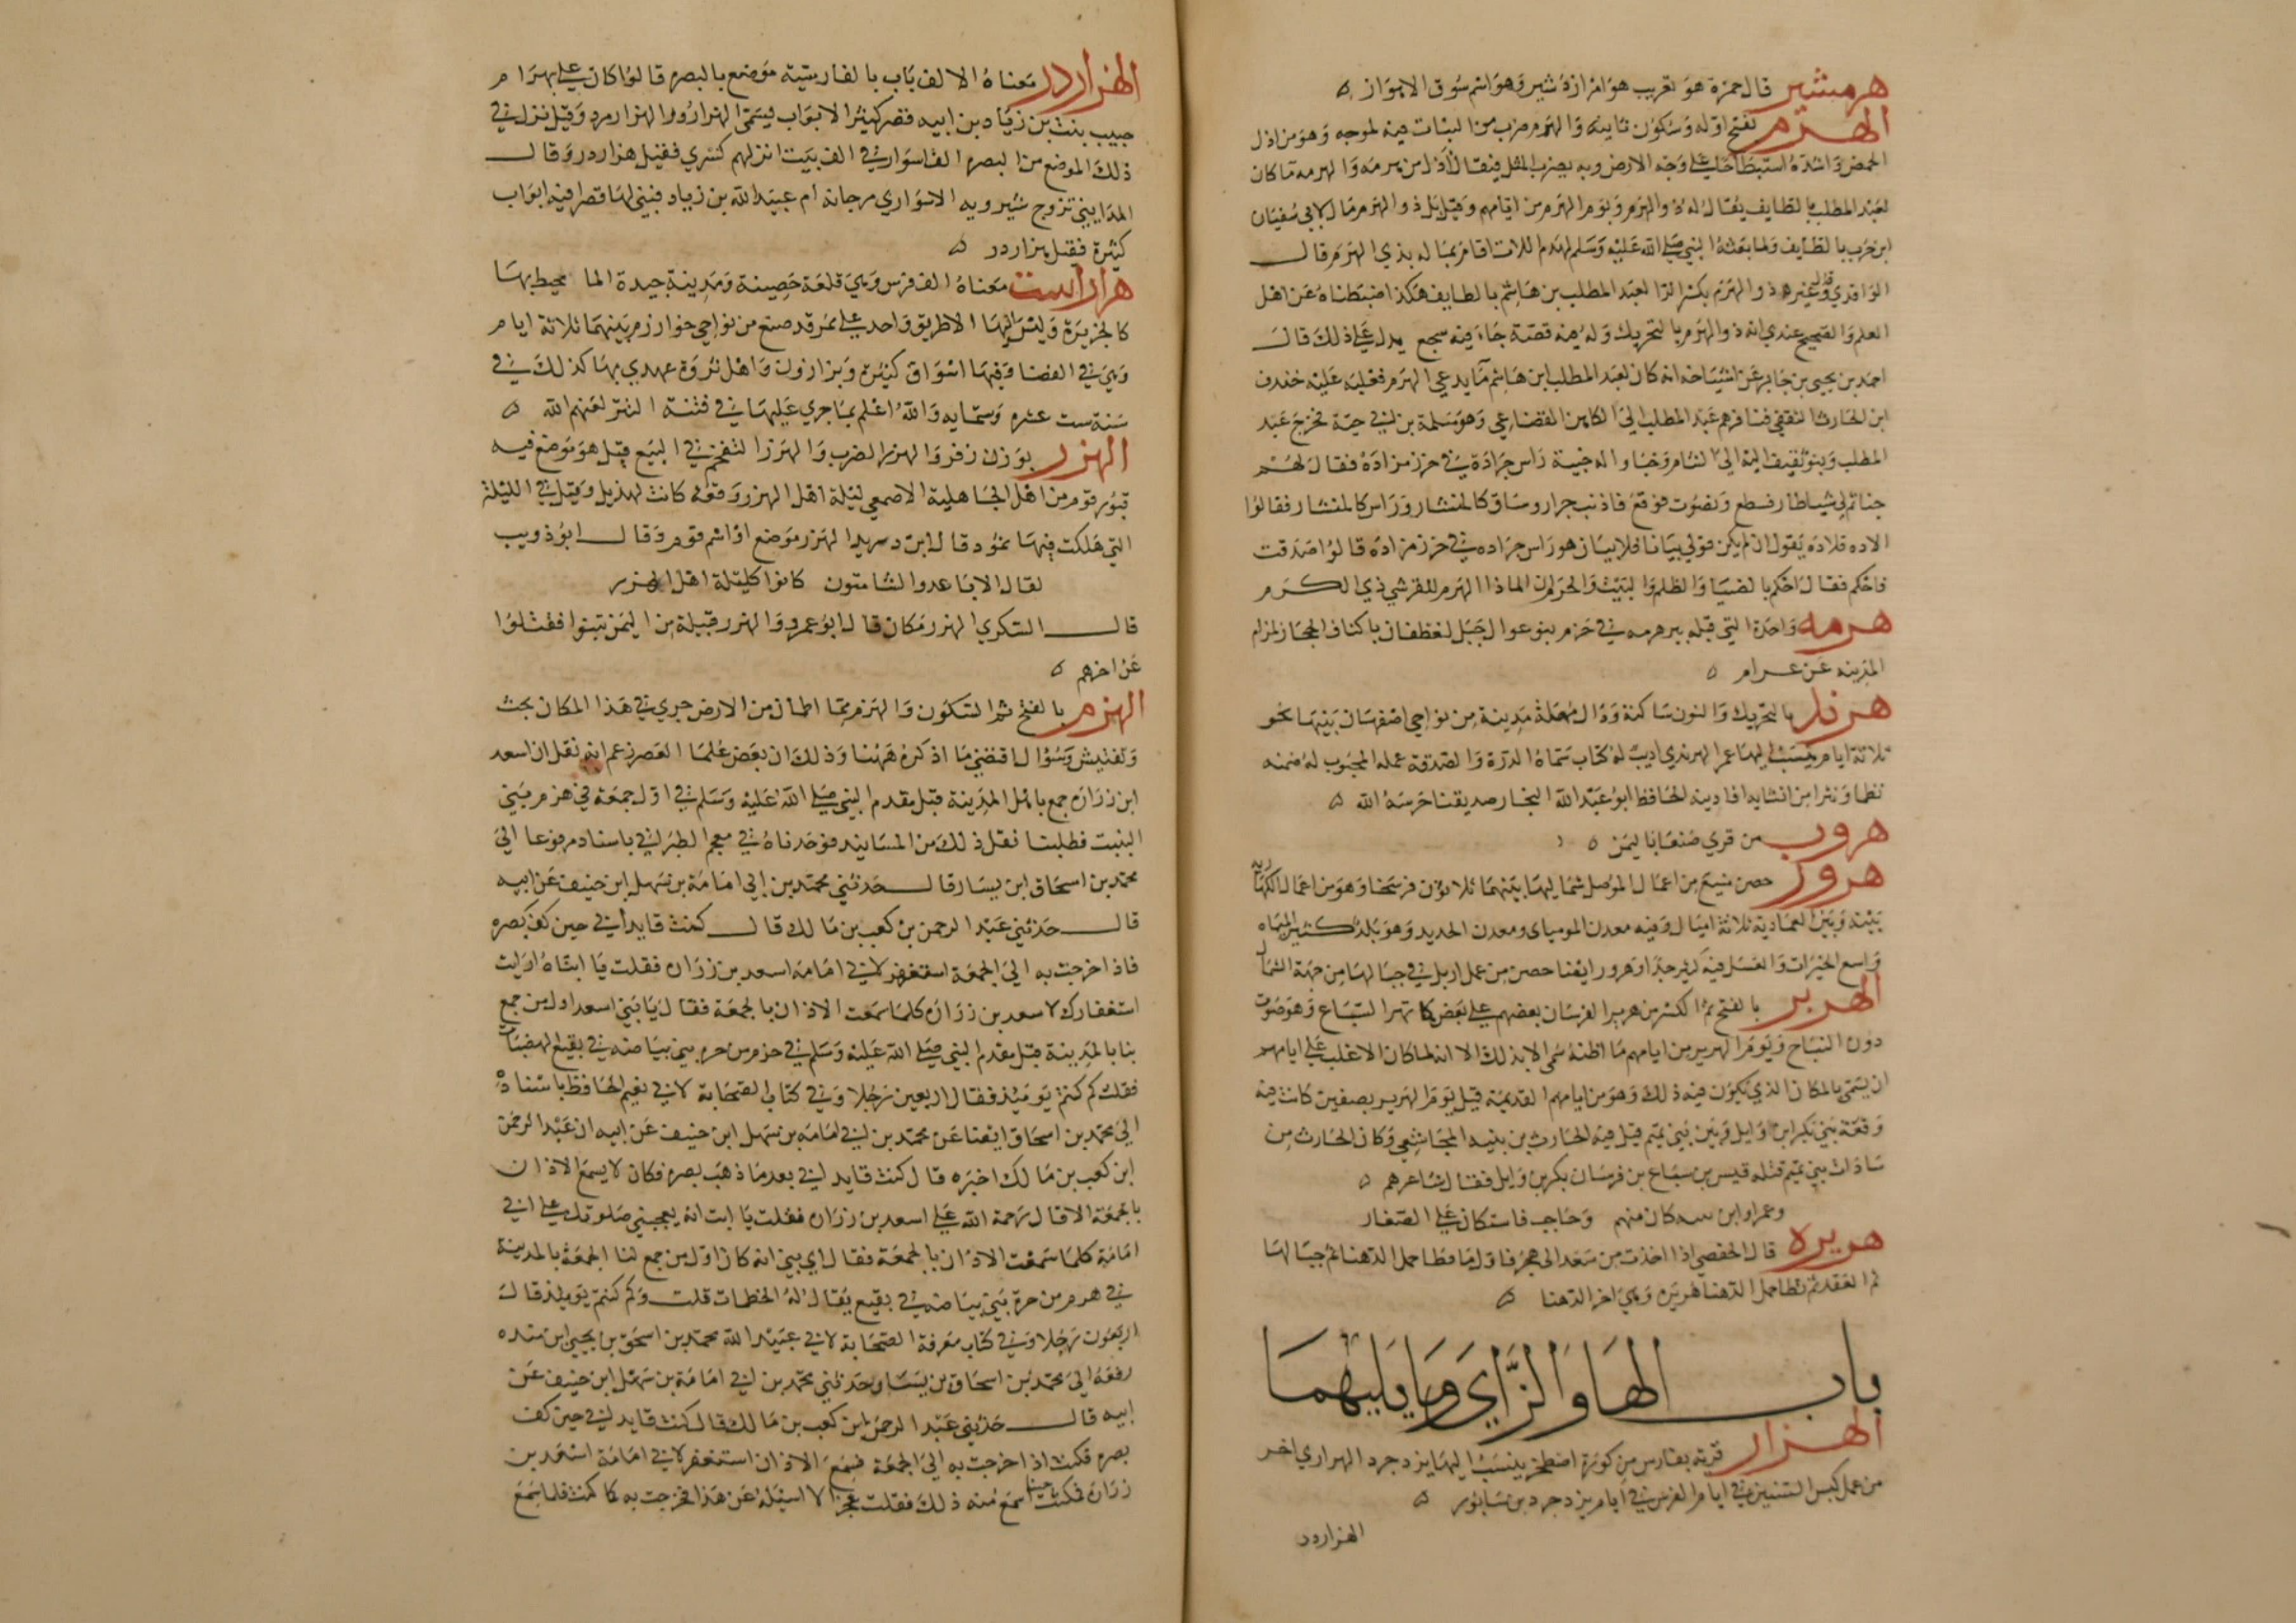 هرمشير قال حمزة هو تعريب هرامز ازد شير وهو اسم سوق الاهواز ه
الهرم بفتح اوله وسكون ثانيه والهرم ضرب من النبات فيه ملوحه وهو من اذل
الحمض واشده استبطاحا على وجه الارض وبه يضرب المثل فيقال اذل من هرمه والهرمه ما كان
لعبد المطلب بالطايف يقال له ذو الهرم ويوم الهرم من ايامهم وقيل بل ذو الهرم مال لابي سفيان
ابن حرب بالطايف ولما بعثه النبي صلى الله عليه وسلم لهدم اللات اقام بماله بذي الهرم قال
الواقدي وقال غيره ذو الهرم بكسر الرا لعبد المطلب بن هاشم بالطايف هكذا ضبطناه عن اهل
العلم والصحيح عندي انه ذو الهرم بالتحريك وله فيه قصة جاء فيه سجع يدل على ذلك قال
احمد بن يحيى بن جابر عن اشياخه انه كان لعبد المطلب ابن هاشم ما يدعى الهرم فغلبه عليه خندف
ابن الحارث الثقفي فنافرهم عبد المطلب الى الكاهن القضاعي وهو سلمة بن ابي حية فخرج عبد
المطلب وبنو ثقيف اليه الى الشام وخباوا له خبية راس جرادة في خرز مزادة فقال لهم
خباتم لي شيا طار فسطع وتصوب فوقع فا ذنب جرار وساق كالمنشار وراس كالمنشار فقالوا
الاده فلاده يقول ان لم يكن قولي بيانا فلا بيان هو راس جراده في خرز مزاده قالوا صدقت
فاحكم فقال احكم بالضيا والظلم والبيت والحرم ان الما ذا الهرم للقرشي ذي الكرم
هرمه واحدة التي قبله بير هرمه في حزم بنو عوال جبل لغطفان باكناف الحجاز لمن ام
المدينه عن عرام ه
هرند بالتحريك والنون ساكنة ودال مهملة مدينة من نواحي اصفهان بينهما نحو
ثلاثة ايام ينسب اليها عمر الهرندي اديب له كتاب سماه الدرة والصدفة عمله لمحبوب له ضمنه
نظما ونثرا من انشايه افادنيه الحافظ ابو عبد الله النجار صديقنا حرسه الله ه
هروب من قرى صنعا باليمن ه
هرور حصن منيع من اعمال الموصل شماليها بينهما ثلاثون فرسخا وهو من اعمال الهكارية
بينه وبين العمادية ثلاثة اميال وفيه معدن الموميای ومعدن الحديد وهو بلد كثير المياه
واسع الخيرات والعسل فيه كثير جدا وهرور ايضا حصن من عمل اربل في جبالها من جهة الشمال
الهرير بالفتح ثم الكسر من هرير الفرسان بعضهم على بعض كما تهر السباع وهو صوت
دون النباح ويوم الهرير من ايامهم ما اظنه سمي الا بذلك الا انه لما كان الاغلب على ايامهم
ان يسمى بالمكان الذي يكون فيه ذلك وهو من ايامهم القديمة قبل يوم الهرير بصفين كانت فيه
وقعة بين بكر ابن وايل وبين بني تميم قتل فيه الحارث بن بيبه المجاشعي وكان الحارث من
سادات بني تميم قتله قيس بن سباع بن فرسان بكر بن وايل فقال شاعرهم ه
وعمرا وابن بيبه كان منهم وحاجب فاستكان على الصغار
هريرة قال الحفصي اذا اخذت من سعد الى هجر فاول ما تطا حمل الدهنا ثم جبالها
ثم العقد ثم تطا حمل الدهنا هريرة وهي اخر الدهنا ه
باب الهاء والزاي وما يليهما
الهزار قرية بفارس من كورة اصطخر ينسب اليها يزدجرد الهزاري اخر
من عمل كبس السنين في ايام الفرس في ايام يزدجرد بن سابور ه
الهزاردر
الهزاردر معناه الالف باب بالفارسية موضع بالبصره قالوا كان على بهرام
حبيب بنت بن زياد بن ابيه قصر كثير الابواب فيسمى الهزاردر والهزارمرد وقيل نزل في
ذلك الموضع من البصره الف اسوار في الف بيت انزلهم كسرى فقيل هزاردر وقال
المدايني تزوج شيرويه الاسواري مرجانه ام عبيد الله بن زياد فبنى لها قصرا فيه ابواب
كثيرة فقيل هزاردر ه
هزاراست معناه الف فرس وهي قلعة حصينة ومدينة جيدة الما محيط بها
كالجزيرة وليس اليها الا طريق واحد على ممر قد صنع من نواحي خوارزم بينهما ثلاثة ايام
وهي في الفضا وفيها اسواق كثيرة وبزازون واهل ثروة عهدي بها كذلك في
سنة ست عشره وستمايه والله اعلم بما جرى عليها في فتنة التتر لعنهم الله ه
الهزر بوزن زفر والهزر الضرب والهزر التقحم في البيع قيل هو موضع فيه
قبور قوم من اهل الجاهلية الاصمعي ليلة اهل الهزر وقعة كانت لهذيل وقيل في الليلة
التي هلكت فيها ثمود قال ابن دريد الهزر موضع او اسم قوم وقال ابو ذويب
لقال الاباعد والشامتون كانوا كليلة اهل الهزر
قال السكري الهزر مكان قال ابو عمرو والهزر قبيلة من اليمن بيتوا فقتلوا
عن اخرهم ه
الهزم بالفتح ثم السكون والهزم ما اطمان من الارض جرى في هذا المكان بحث
وتفتيش وسوال اقتضى ما اذكره ههنا وذلك ان بعض علما العصر زعم انه نقل ان اسعد
ابن زراره جمع باهل المدينة قبل مقدم النبي صلى الله عليه وسلم في اول جمعة في هزم بني
النبيت فطلبنا نقل ذلك من المسانيد فوجدناه في معجم الطبراني باسناد مرفوعا الى
محمد بن اسحاق ابن يسار قال حدثني محمد بن ابي امامة بن سهل ابن حنيف عن ابيه
قال حدثني عبد الرحمن بن كعب بن مالك قال كنت قايد ابي حين كف بصره
فاذا خرجت به الى الجمعة استغفر لابي امامة اسعد بن زراره فقلت يا ابتاه ارايت
استغفارك لاسعد بن زراره كلما سمعت الاذان بالجمعة فقال يا بني اسعد اول من جمع
بنا بالمدينة قبل مقدم النبي صلى الله عليه وسلم في هزم من حره بني بياضه في بقيع الخضمات
فقلت كم كنتم يوميذ فقال اربعين رجلا وفي كتاب الصحابة لابي نعيم الحافظ باسناده
الى محمد بن اسحاق ايضا عن محمد بن ابي امامه بن سهل ابن حنيف عن ابيه ان عبد الرحمن
ابن كعب بن مالك اخبره قال كنت قايد ابي بعد ما ذهب بصره فكان لا يسمع الاذان
بالجمعة الا قال رحمة الله على اسعد بن زراره فقلت يا ابت انه يعجبني صلوتك على ابي
امامة كلما سمعت الاذان بالجمعة فقال اي بني انه كان اول من جمع لنا الجمعة بالمدينة
في هزم من حرة بني بياضه في بقيع يقال له الخضمات قلت وكم كنتم يوميذ قال
اربعون رجلا وفي كتاب معرفة الصحابة لابي عبيد الله محمد بن اسحق بن يحيى ابن منده
رفعه الى محمد بن اسحاق بن يسار وحدثني محمد بن ابي امامة بن سهل ابن حنيف عن
ابيه قال حدثني عبد الرحمن بن كعب بن مالك قال كنت قايد ابي حين كف
بصره فكنت اذا خرجت به الى الجمعة فسمع الاذان استغفر لابي امامة اسعد بن
زراره فمكثت حينا اسمع منه ذلك فقلت عجز الا اسيله عن هذا فخرجت به كما كنت فلما سمع